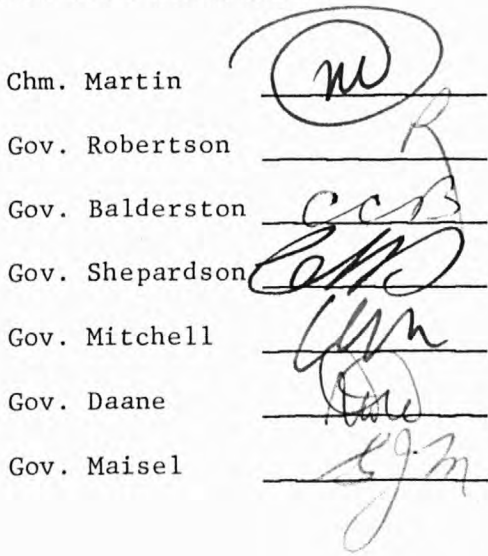 Chm. Martin m
Gov. Robertson R
Gov. Balderston CCB
Gov. Shepardson
Gov. Mitchell
Gov. Daane
Gov. Maisel SJM